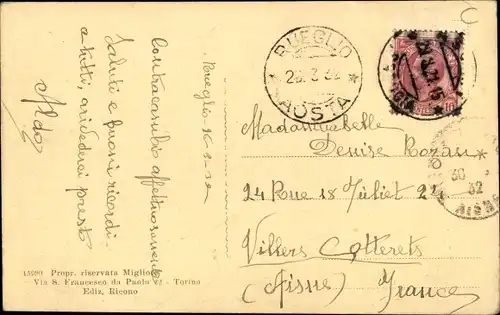 Brueglio 26-3-32
Contraccambio affettuosamente
Saluti e buoni ricordi.
a tutti, arrivederci presto
Aldo
BRUEGLIO
26.3.32
AOSTA
Madame
Denise Rozan
24 Rue 18 Juliet 24
Villers Cotterets
(Aisne) France
30
32
AISNE
15990 Propr. riservata Migliore
Via S. Francesco da Paola - Torino
Ediz. Ricono